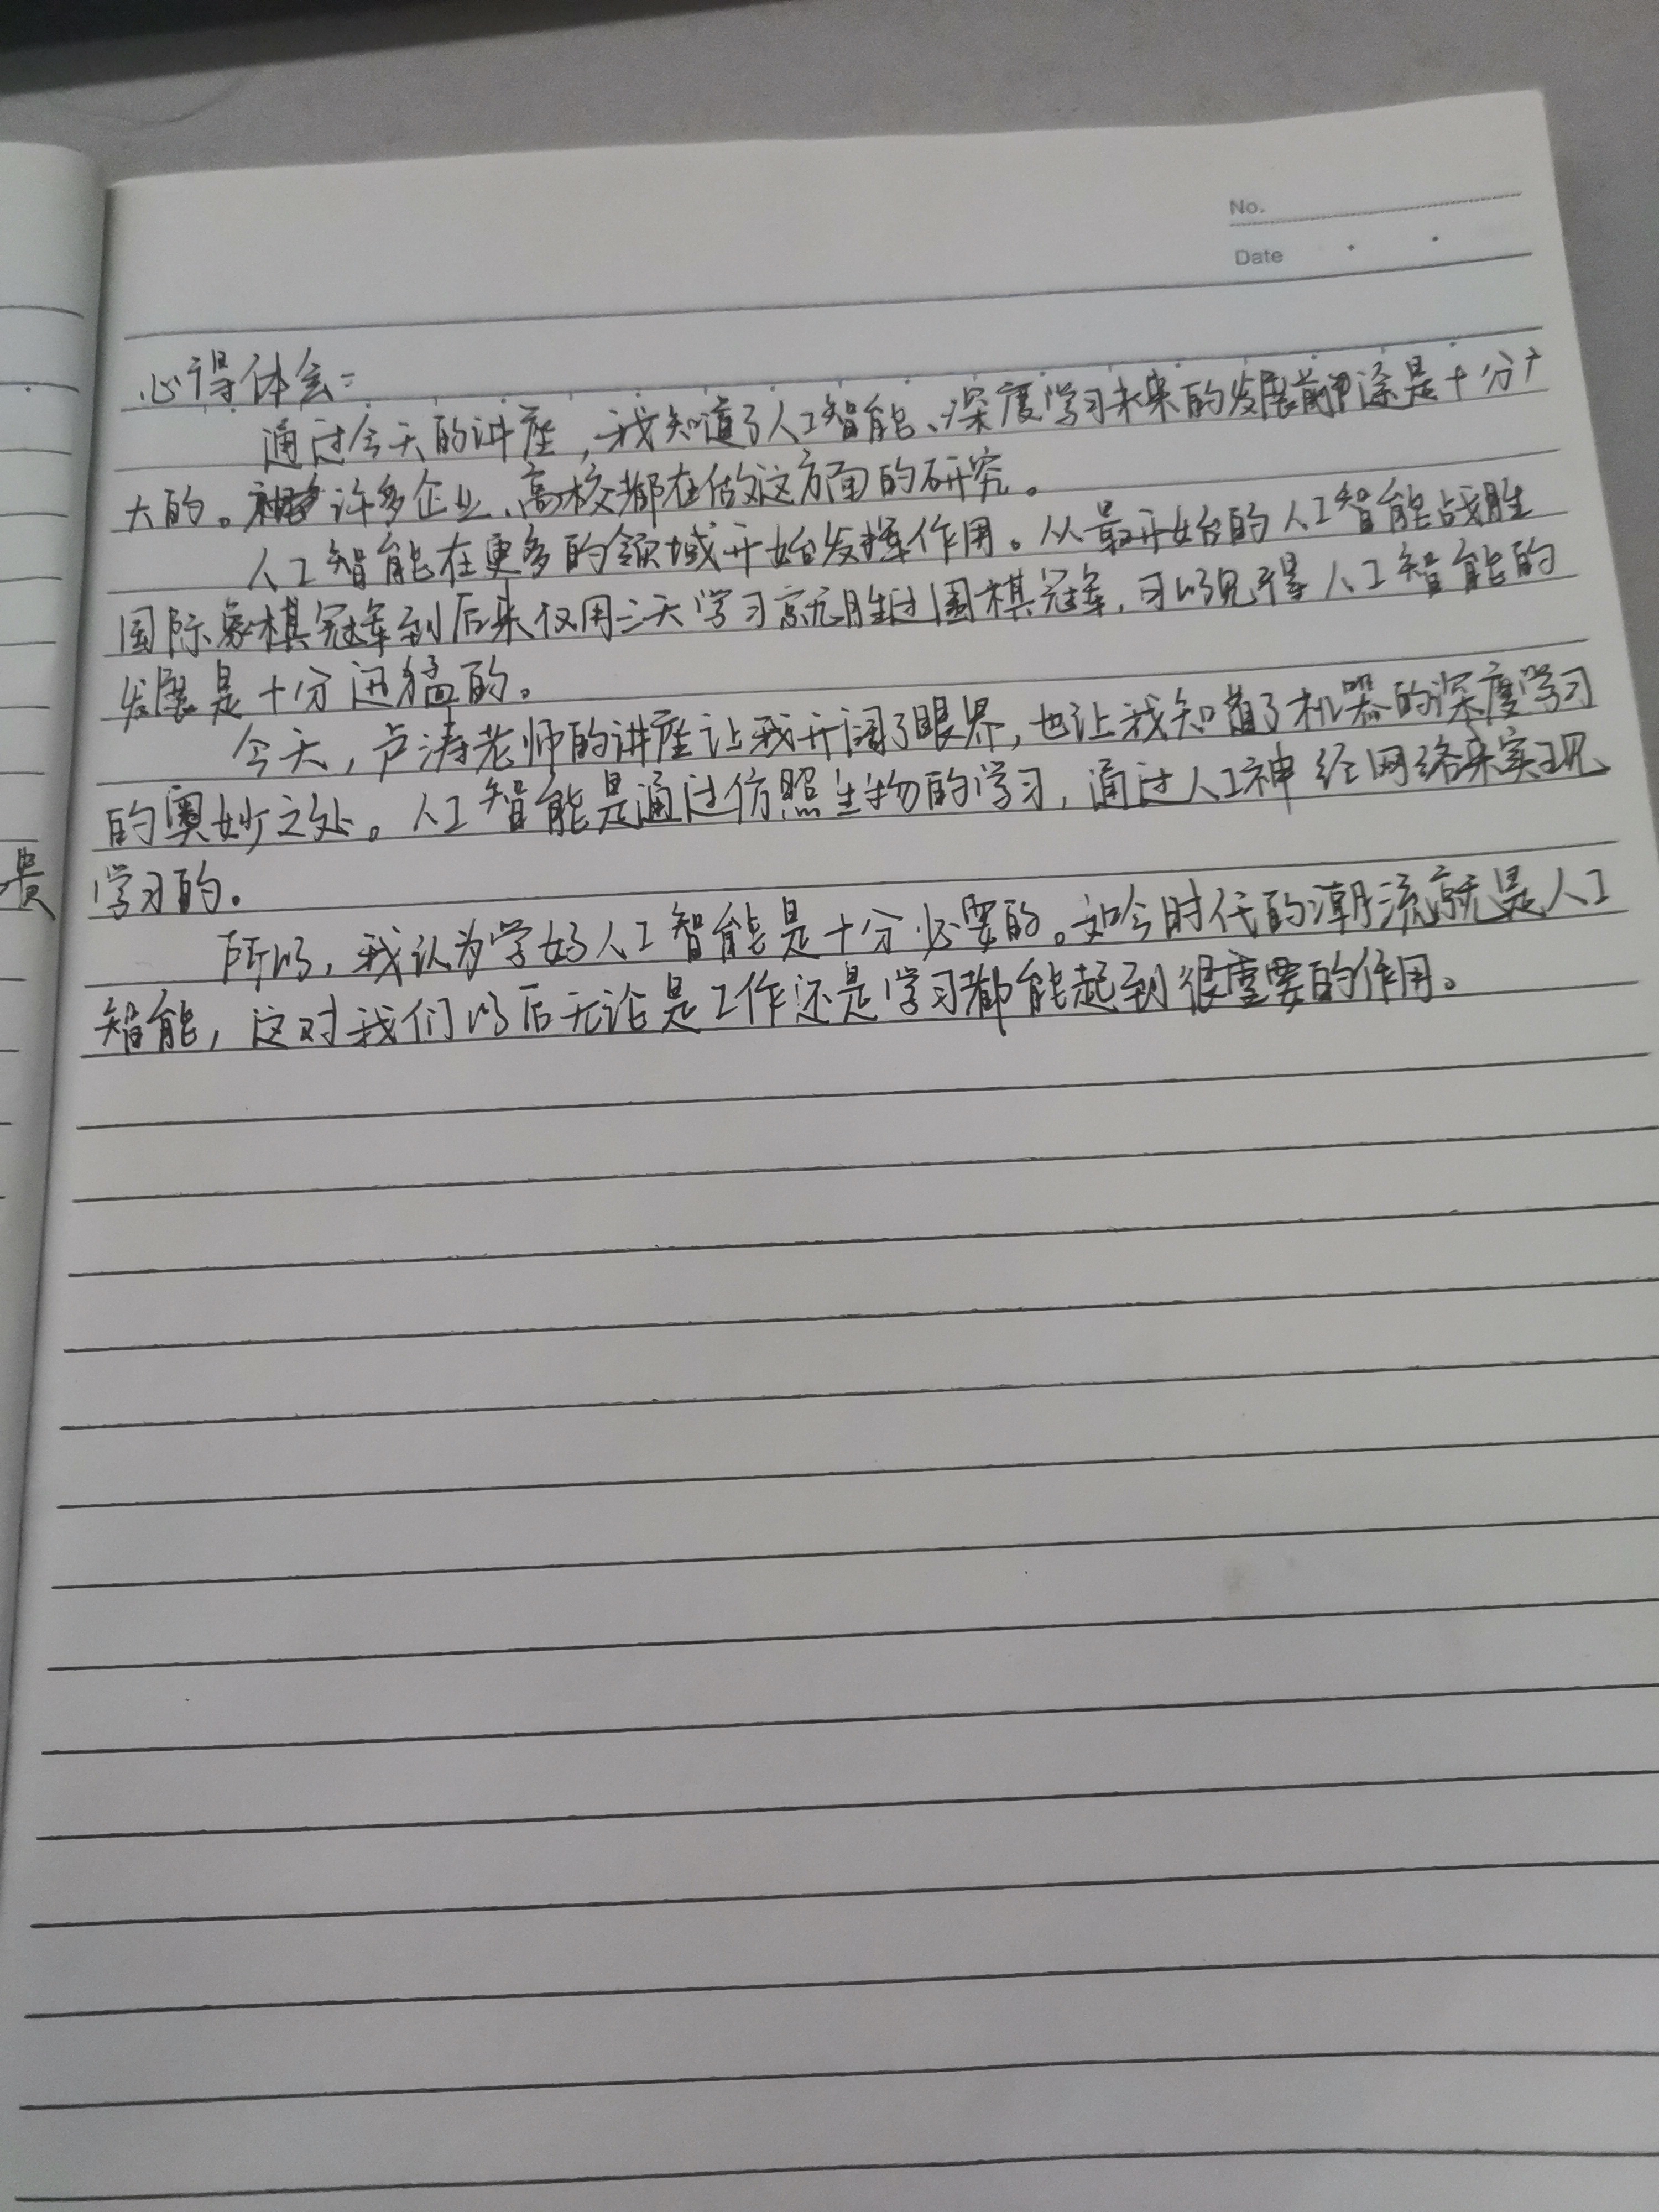 No.
Date
心得体会:
通过今天的讲座,我知道了人工智能、深度学习未来的发展前途是十分广
大的。许多企业、高校都在做这方面的研究。
人工智能在更多的领域开始发挥作用。从最开始的人工智能战胜
国际象棋冠军到后来仅用三天学习就胜过围棋冠军,可以见得人工智能的
发展是十分迅猛的。
今天,卢涛老师的讲座让我开阔了眼界,也让我知道了机器的深度学习
的奥妙之处。人工智能是通过仿照生物的学习,通过人工神经网络来实现
学习的。
所以,我认为学好人工智能是十分必要的。如今时代的潮流就是人工
智能,这对我们以后无论是工作还是学习都能起到很重要的作用。
贵